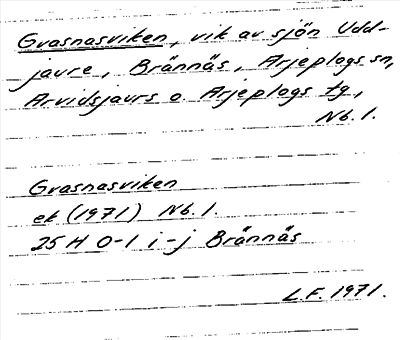 Gvasnasviken, vik av sjön Udd-
javre, Brännäs, Arjeplogs sn,
Arvidsjaurs o Arjeplogs tg,
Nb. l.
Gvasnasviken
ek (1971) Nb. l.
25 H 0-1 i-j Brännäs
L.F. 1971.